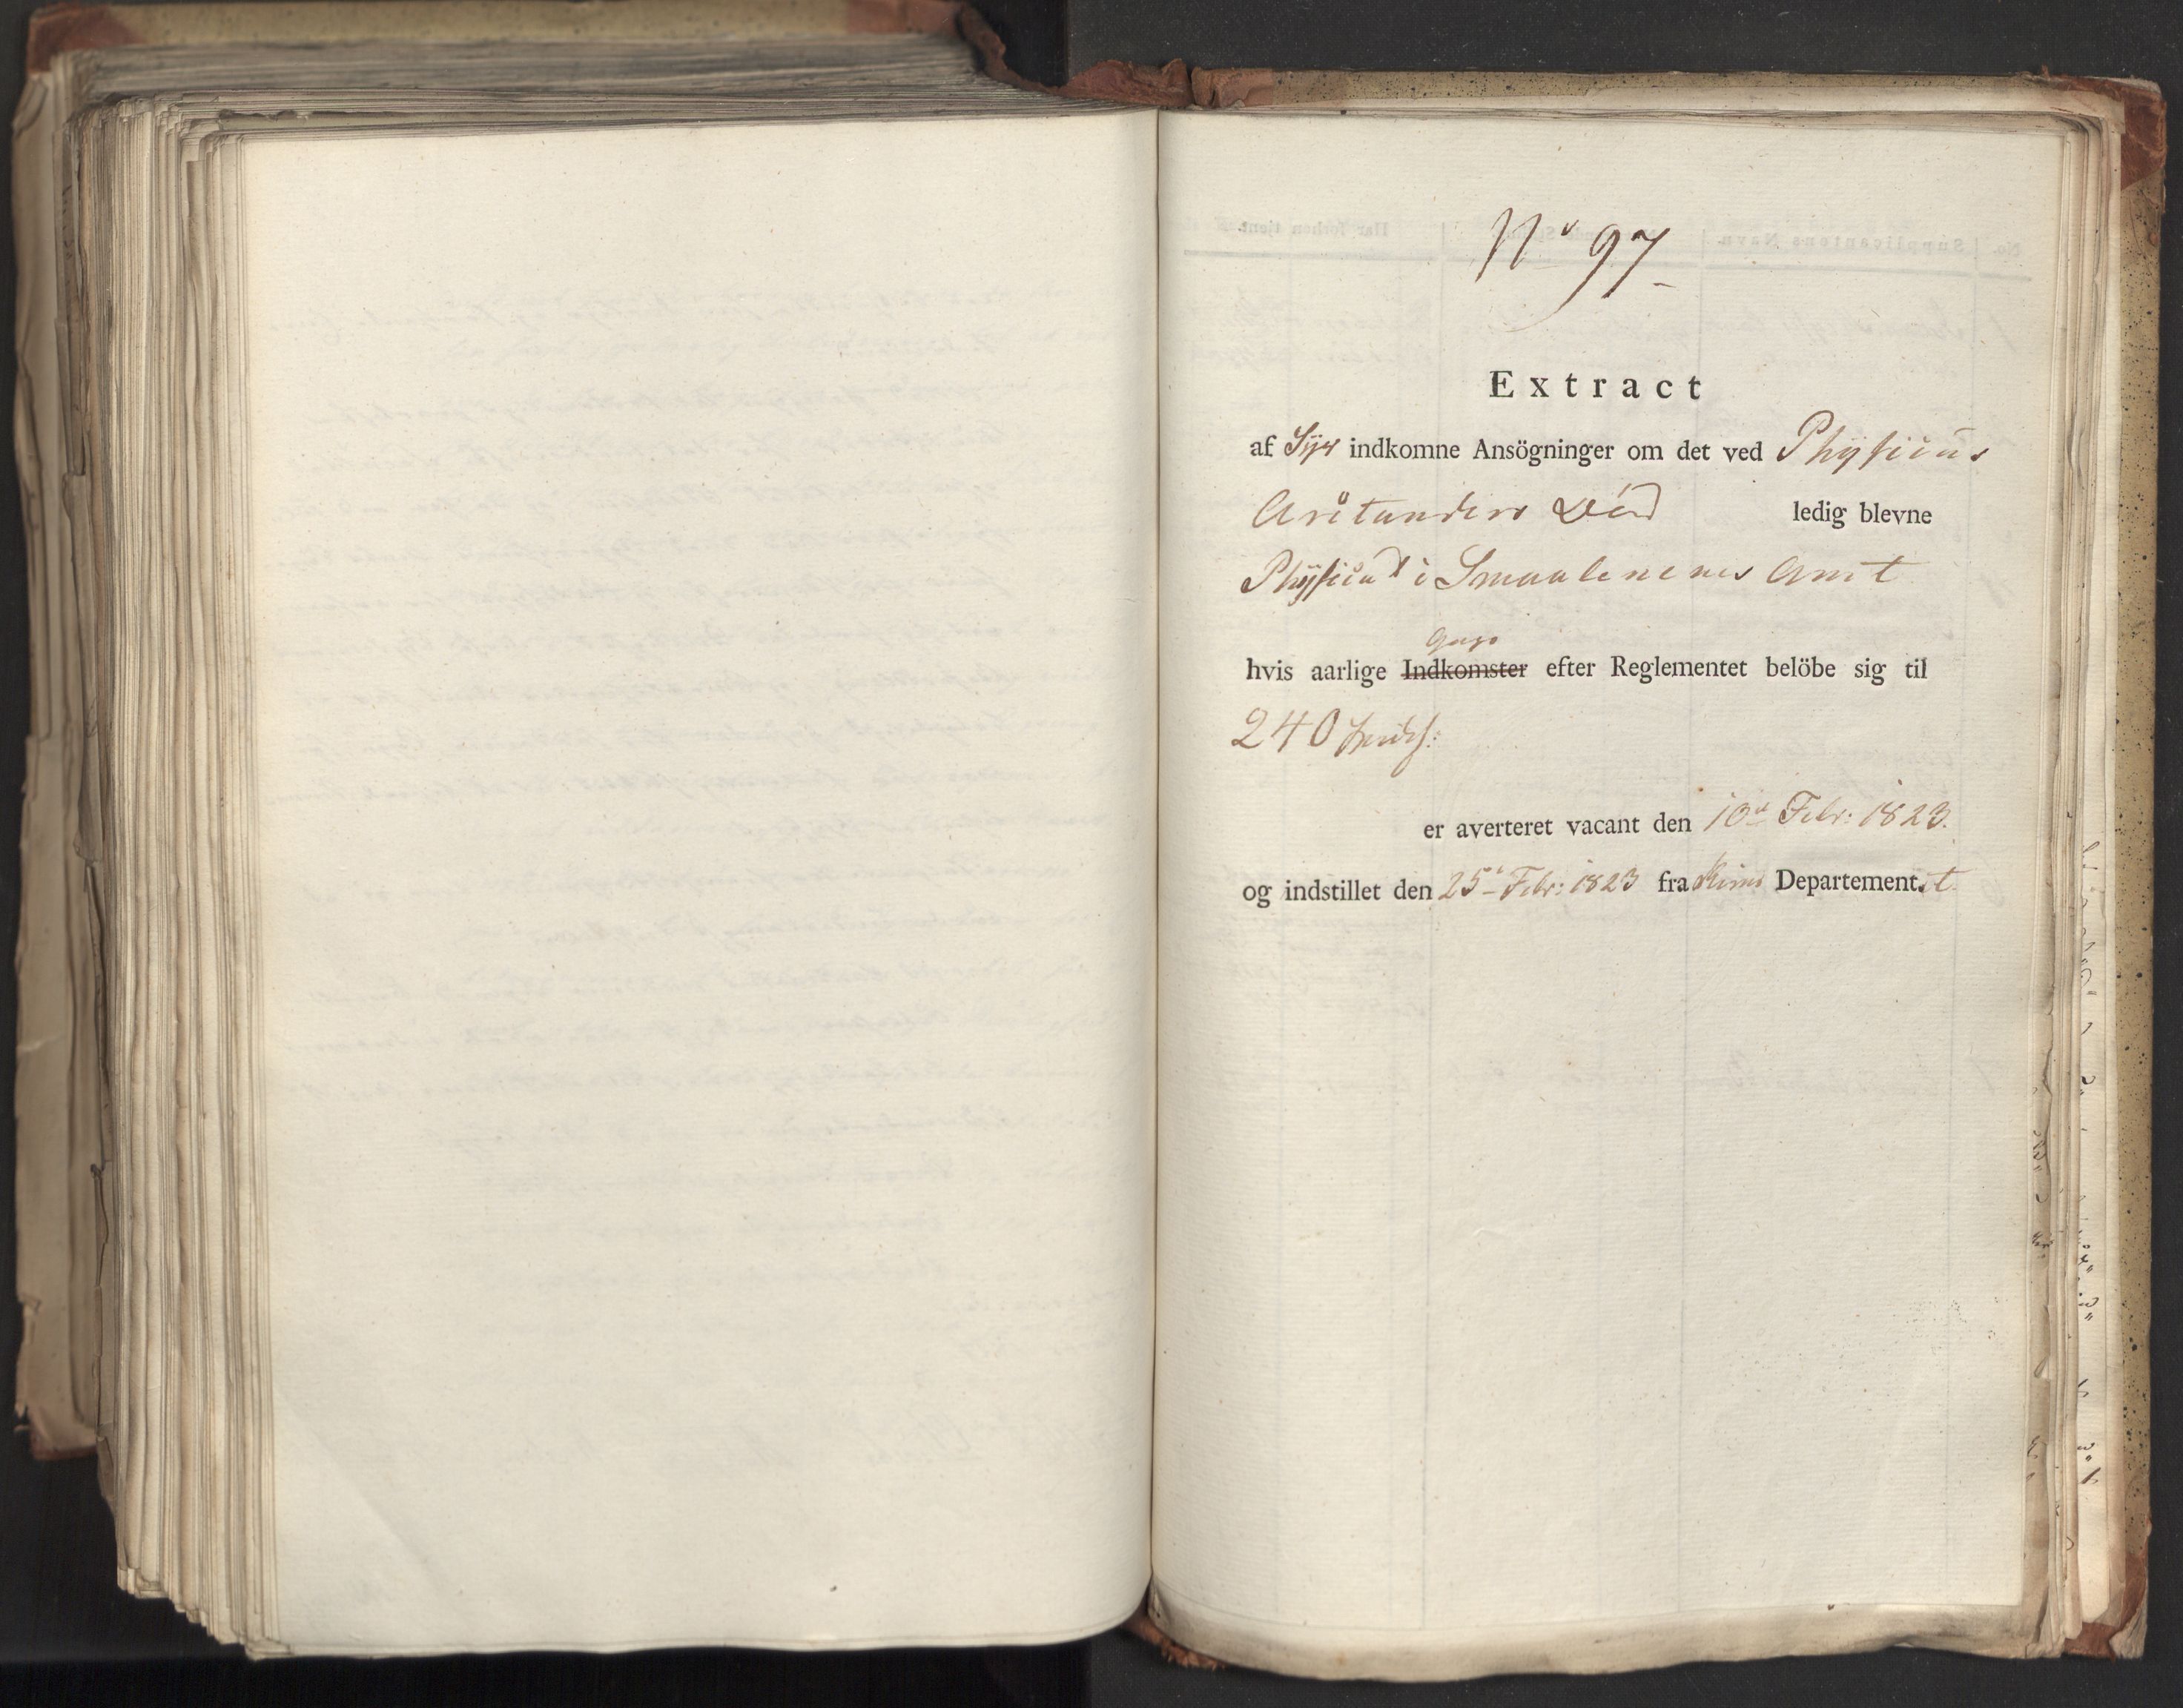 No 97
Extract
af Syv indkomne Ansögninger om det ved Physicus
Död ledig blevne
Physicat i Smaalenenes Amt
Gage
hvis aarlige Indkomster efter Reglementet belöbe sig til
240 Specs:
er averteret vacant den 10de Febr: 1823.
og indstillet den 25de Febr: 1823 fra Departement.et